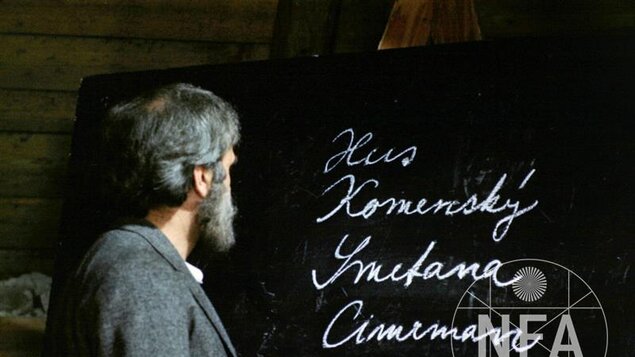 Hus
Komenský
Smetana
Cimrman
NFA